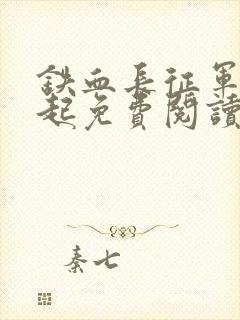 鉄血長征軍
起免費閱讀
秦七